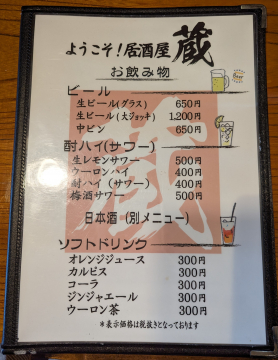 ようこそ!居酒屋 蔵
お飲み物
ビール
生ビール(グラス) 650円
生ビール(大ジョッキ) 1,200円
中ビン 650円
酎ハイ(サワー)
生レモンサワー 500円
ウーロンハイ 400円
酎ハイ(サワー) 400円
梅酒サワー 500円
日本酒(別メニュー)
ソフトドリンク
オレンジジュース 300円
カルピス 300円
コーラ 300円
ジンジャエール 300円
ウーロン茶 300円
*表示価格は税抜きとなっております